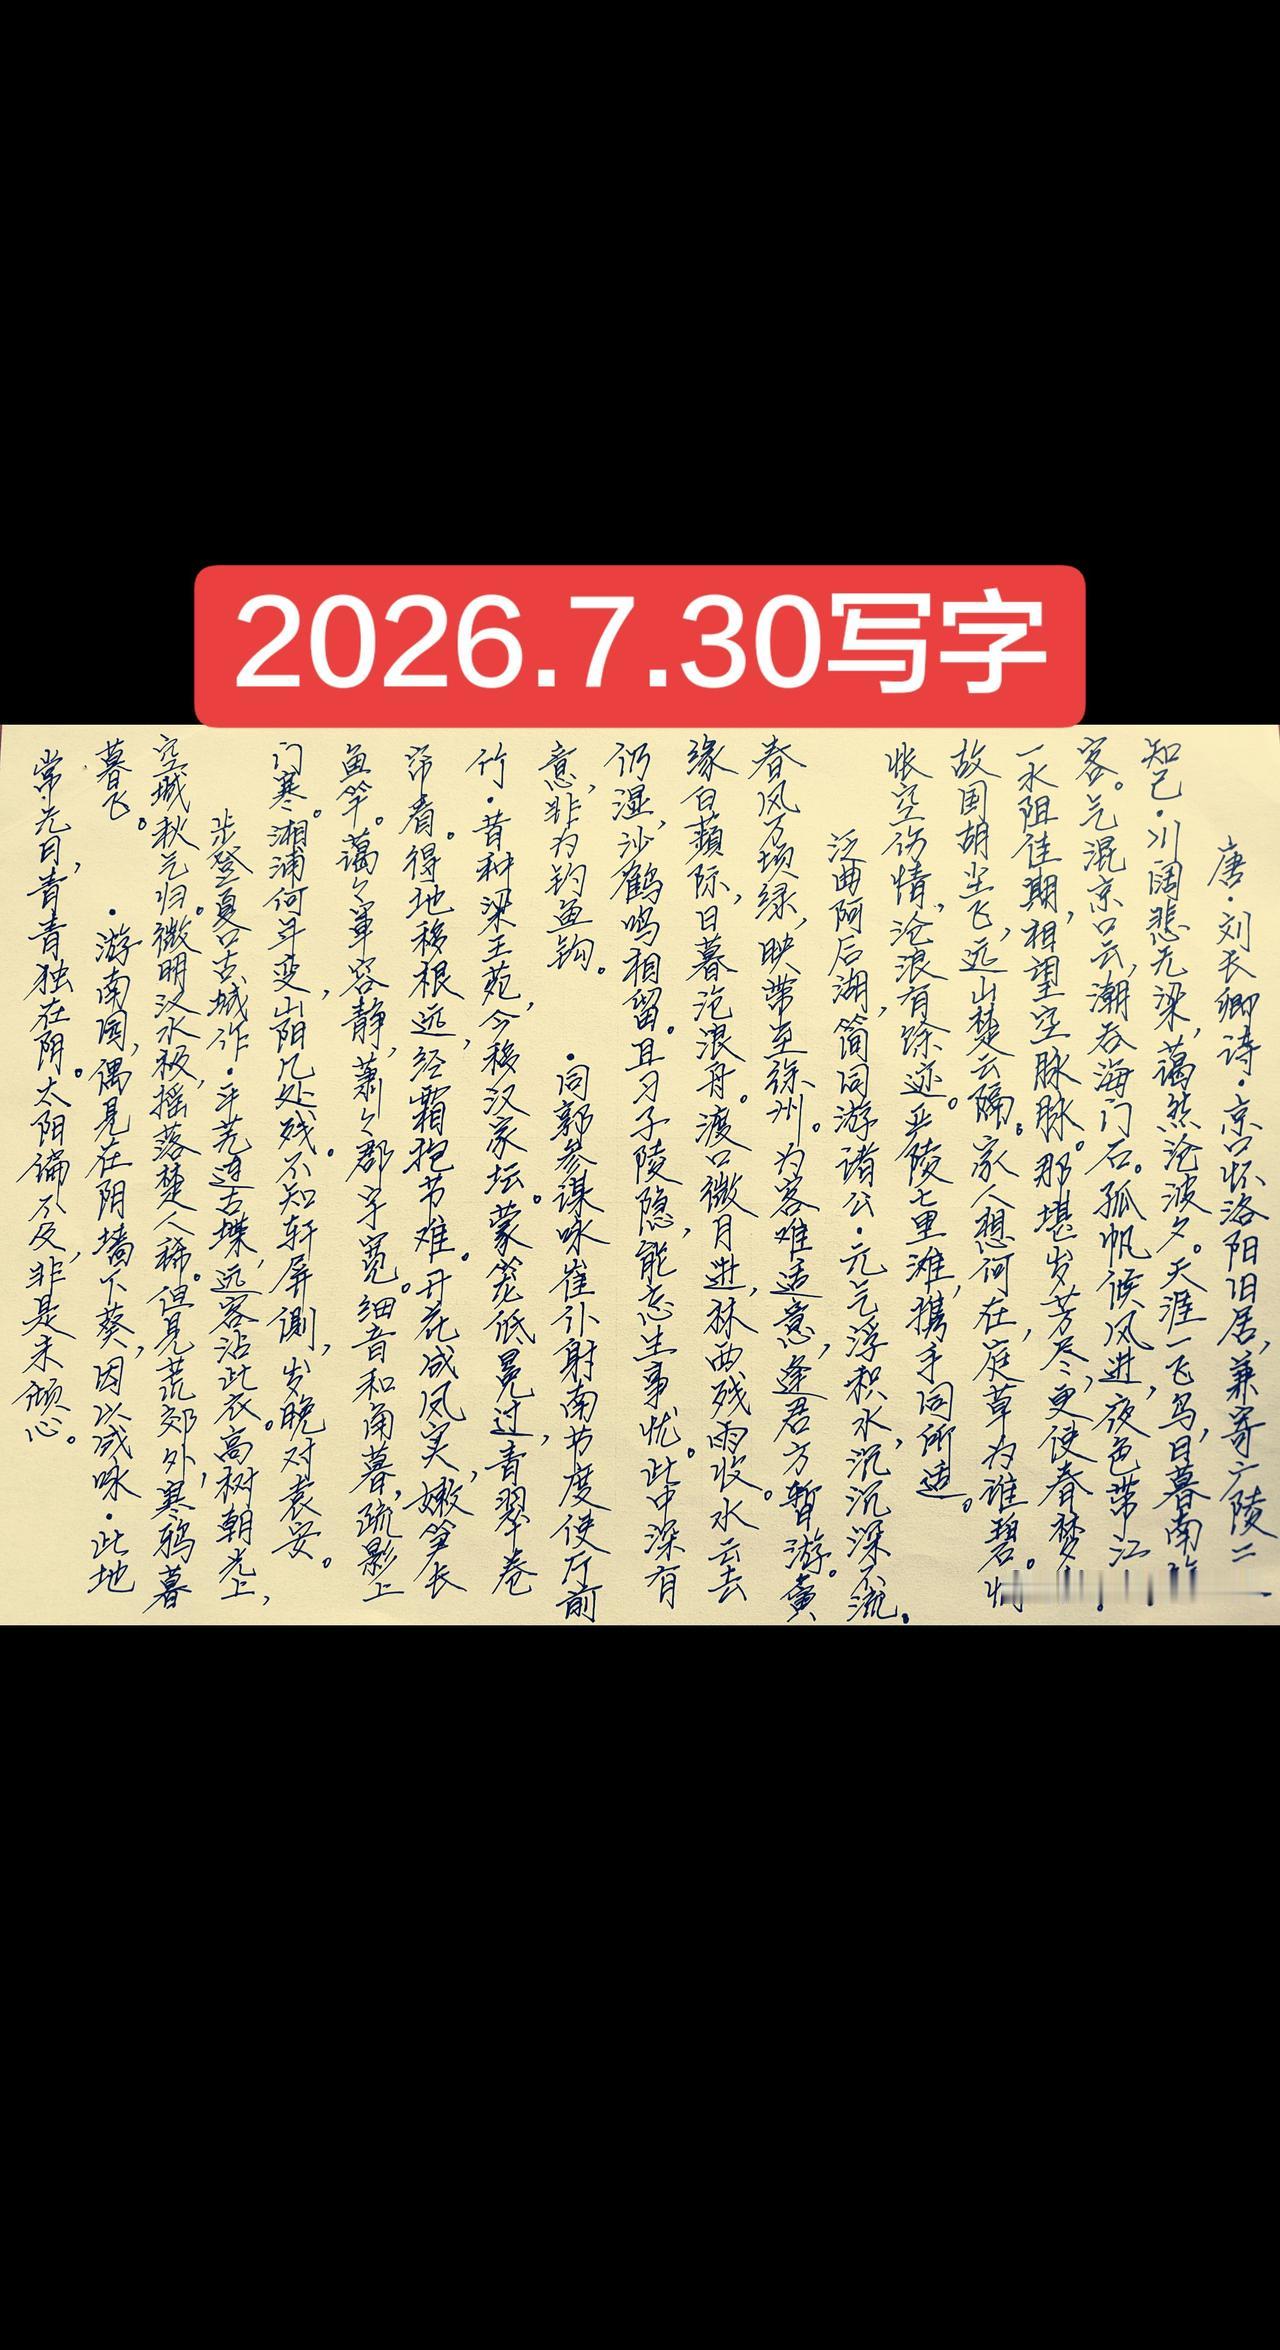 2026.7.30写字
唐·刘长卿诗·京口怀洛阳旧居,兼寄广陵二
知己·川阔悲无梁,蔼然沧波夕。天涯一飞鸟,日暮南
客。气混京口云,潮吞海门石。孤帆候风进,夜色带江
一水阻佳期,相望空脉脉。那堪岁芳尽,更使春梦
故国胡尘飞,远山楚云隔。家人想何在,庭草为谁碧。
怅空伤情,沧浪有馀迹。严陵七里滩,携手同所适。
泛曲阿后湖,简同游诸公·元气浮积水,沉沉深不流。
春风万顷绿,映带至徐州。为客难适意,逢君方暂游。夤
缘白蘋际,日暮沧浪舟。渡口微月进,林西残雨收。水云去
仍湿,沙鹤鸣相留。且习子陵隐,能忘生事忧。此中深有
意,非为钓鱼钩。
·同郭参谋咏崔仆射南节度使厅前
竹·昔种梁王苑,今移汉家坛。蒙笼低冕过,青翠卷
帘看。得地移根远,经霜抱节难。开花成凤实,嫩笋长
鱼竿。蔼々军容静,萧々郡宇宽。细音和角暮,疏影上
门寒。湘浦何年变,山阳几处残。不知轩屏侧,岁晚对袁安。
步登夏口古城作·平芜连古堞,远客沾此衣。高树朝光上,
空城秋气归。微明汉水极,摇落楚人稀。但见荒郊外,寒鸦暮
暮飞。
·游南园,偶见在阴墙下葵,因以成咏·此地
常无日,青青独在阴。太阳偏不及,非是未倾心。